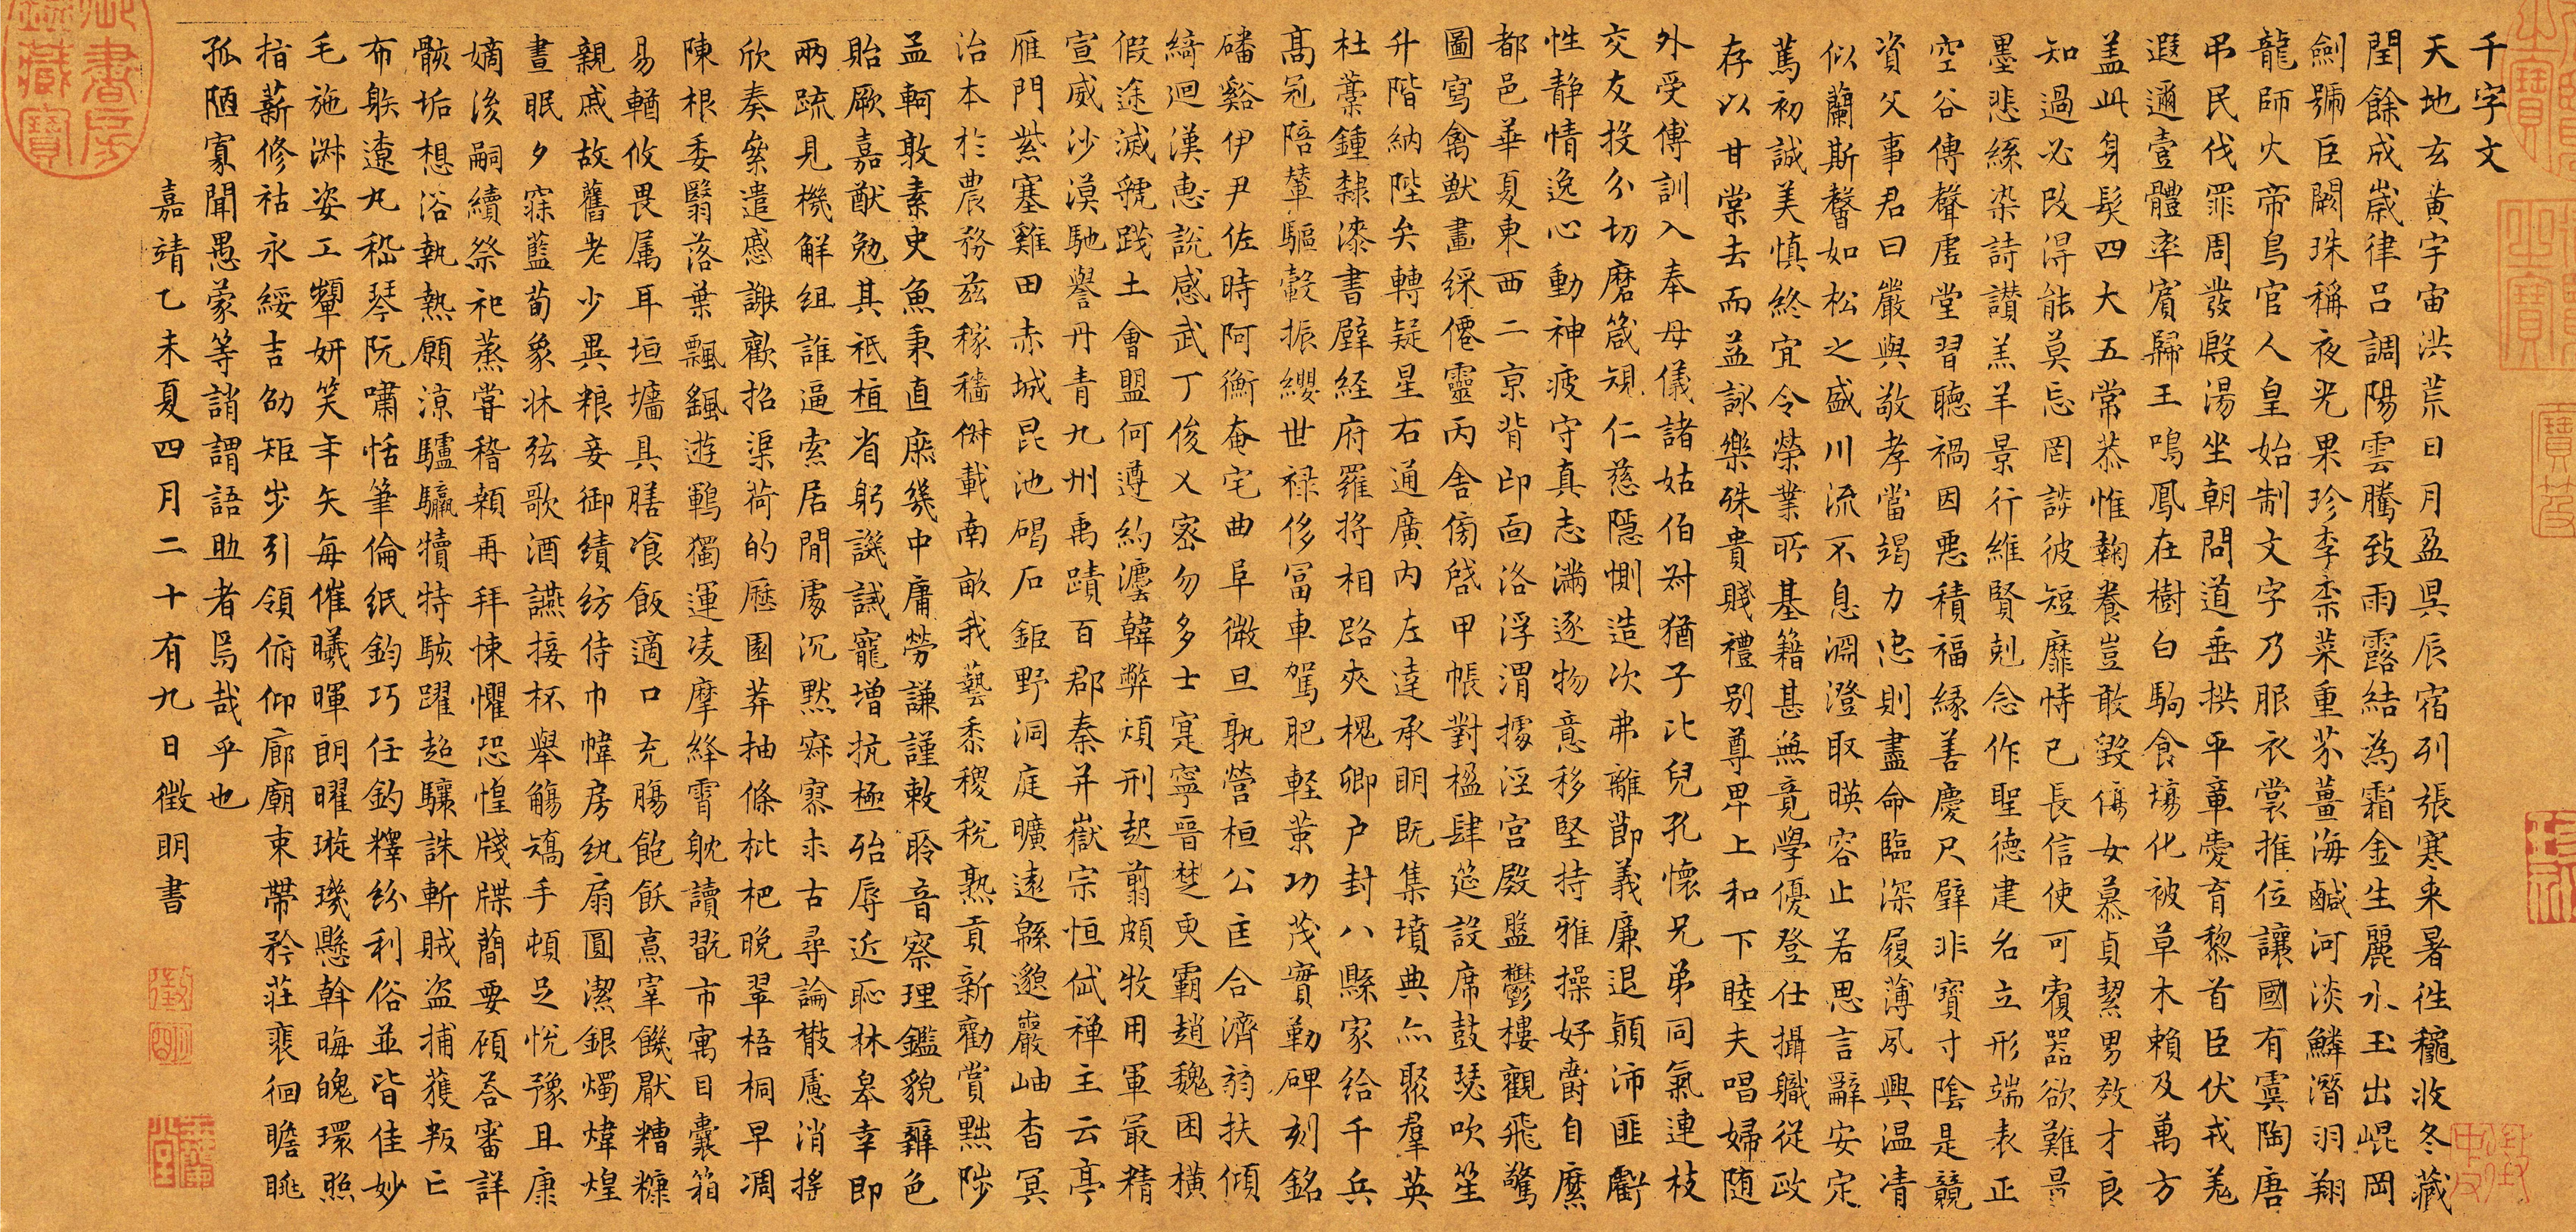 千字文
天地玄黃宇宙洪荒日月盈昃辰宿列張寒来暑往穐收冬藏
閏餘成歲律呂調陽雲騰致雨露結為霜金生麗水玉出崐岡
劍號巨闕珠稱夜光果珍李柰菜重芥薑海鹹河淡鱗潛羽翔
龍師火帝鳥官人皇始制文字乃服衣裳推位讓國有虞陶唐
弔民伐罪周發殷湯坐朝問道垂拱平章愛育黎首臣伏戎羌
遐邇壹體率賓歸王鳴鳳在樹白駒食場化被草木賴及萬方
盖此身髮四大五常恭惟鞠養豈敢毀傷女慕貞絜男效才良
知過必改得能莫忘罔談彼短靡恃己長信使可覆器欲難量
墨悲絲染詩讚羔羊景行維賢剋念作聖德建名立形端表正
空谷傳聲虛堂習聽禍因惡積福緣善慶尺璧非寶寸陰是競
資父事君曰嚴與敬孝當竭力忠則盡命臨深履薄夙興温凊
似蘭斯馨如松之盛川流不息淵澄取暎容止若思言辭安定
篤初誠美慎終宜令榮業所基籍甚無竟學優登仕攝職從政
存以甘棠去而益詠樂殊貴賤禮别尊卑上和下睦夫唱婦随
外受傅訓入奉母儀諸姑伯叔猶子比兒孔懷兄弟同氣連枝
交友投分切磨箴規仁慈隱惻造次弗離節義廉退顛沛匪虧
性静情逸心動神疲守真志滿逐物意移堅持雅操好爵自縻
都邑華夏東西二京背邙面洛浮渭據涇宫殿盤鬱樓觀飛驚
圖寫禽獸畫綵僊靈丙舍傍啟甲帳對楹肆筵設席鼓瑟吹笙
升階納陛弁轉疑星右通廣内左達承明既集墳典亦聚羣英
杜藁鍾隸漆書壁経府羅将相路夾槐卿户封八縣家給千兵
髙冠陪輦驅轂振纓世禄侈冨車駕肥軽策功茂實勒碑刻銘
磻谿伊尹佐時阿衡奄宅曲阜微旦孰營桓公匡合濟弱扶傾
綺迴漢惠說感武丁俊乂密勿多士寔寧晉楚更霸趙魏困横
假途滅虢踐土會盟何遵約灋韓弊煩刑起翦頗牧用軍最精
宣威沙漠馳譽丹青九州禹蹟百郡秦并嶽宗恒岱禅主云亭
雁門紫塞雞田赤城昆池碣石鉅野洞庭曠遠緜邈巖岫杳冥
治本於農務兹稼穡俶載南畝我藝黍稷稅熟貢新勸賞黜陟
孟軻敦素史魚秉直庶幾中庸勞謙謹敕聆音察理鑑貌辨色
貽厥嘉猷勉其祗植省躬譏誡寵增抗極殆辱近恥林皋幸即
兩疏見機解组誰逼索居閒處沉默寂寥求古尋論散慮消揺
欣奏絫遣慼謝歡招渠荷的歷園莽抽條枇杷晚翠梧桐早凋
陳根委翳落葉飄颻遊鵾獨運凌摩絳霄躭讀翫市寓目囊箱
易輶攸畏属耳垣墻具膳飡飯適口充腸飽飫烹宰饑厭糟糠
親戚故舊老少異粮妾御績紡侍巾帷房紈扇圓潔銀燭煒煌
晝眠夕寐藍荀象牀弦歌酒讌接杯舉觴矯手頓足悅豫且康
嫡後嗣續祭祀蒸嘗稽顙再拜悚懼恐惶牋牒簡要顧荅審詳
骸垢想浴執熱願涼驢驘犢特駭躍超驤誅斬賊盗捕獲叛亡
布躲遼丸嵇琴阮嘯恬筆倫紙鈞巧任釣釋紛利俗並皆佳妙
毛施淑姿工顰妍笑年矢每催曦暉朗曜璇璣懸斡晦魄環照
指薪修祜永綏吉劭矩步引領俯仰廊廟束帶矜莊裴徊瞻眺
孤陋寡聞愚蒙等誚謂語助者焉哉乎也
嘉靖乙未夏四月二十有九日徵明書